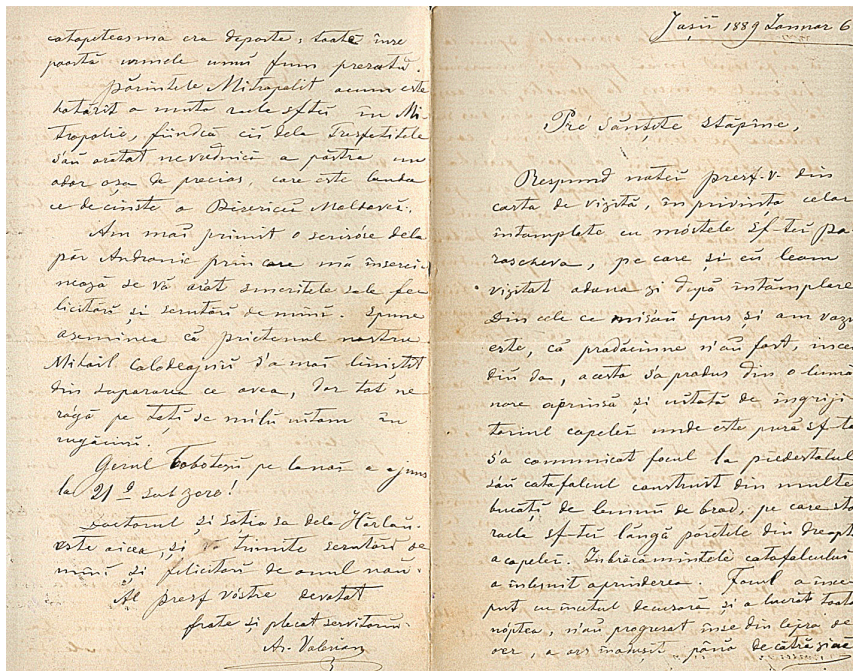 catapeteasma era departe; toate însе
poartă urmele unui fum
Părintele Mitropolit acum este
hotărît a muta racla sftei în Mi
tropolie, fiindcă cei dela Trisfetitele
s'au arătat nevrednici a păstra un
odor așa de precios, care este lauda
ce de cinste a Bisericei Moldovei.
Am mai primit o scrisóre dela
păr Andronic prin care mă însărci
nează se vă arăt smeritele sale fe
licitări și serutări de mâni. Spune
asemenea că prietenul nostru
Mihail s'a mai liniștit
din supărarea ce avea, dar tot ne
rógă pe toți se nu'lu uităm în
rugăciuni.
Gerul Bobotezei pe la noi a ajuns
la 21º sub zero!
Doctorul și soția sa dela Hârlău
este aicea, și vă trimite serutări de
mâni și felicitări de anul nou.
Al presf vóstre devotat
frate și plecat servitoriu
Ar. Valerian
Iașii 1889 Ianuar 6
Pré Sânțite Stăpîne,
Respund notei presf. v. din
carta de vizită, în privința celor
întâmplate cu móstele Sf-tei Pa
rascheva, pe care și eu leam
vizitat adoua zi după întâmplare
Din cele ce misau spus și am văzut
este, că prădăciune n'au fost, incen
diu da, acesta sa produs din o lumâ
nare aprinsă și uitată de îngriji
toriul capelei unde este pusă sf-ta
S'a comunicat focul la piedestalul
sau catafalcul construit din multe
bucăți de lemnu de brad, pe care sta
racla sf-tei lângă păretele din drépta
a capelei. Înbrăcămintele catafalcului
a înlesnit aprinderea. Focul a ince
put cu incetul decuseară și a lucrat toată
nóptea, n'au progresat înse din lipsa de
aer, a ars inăbușit până decătră ziuă